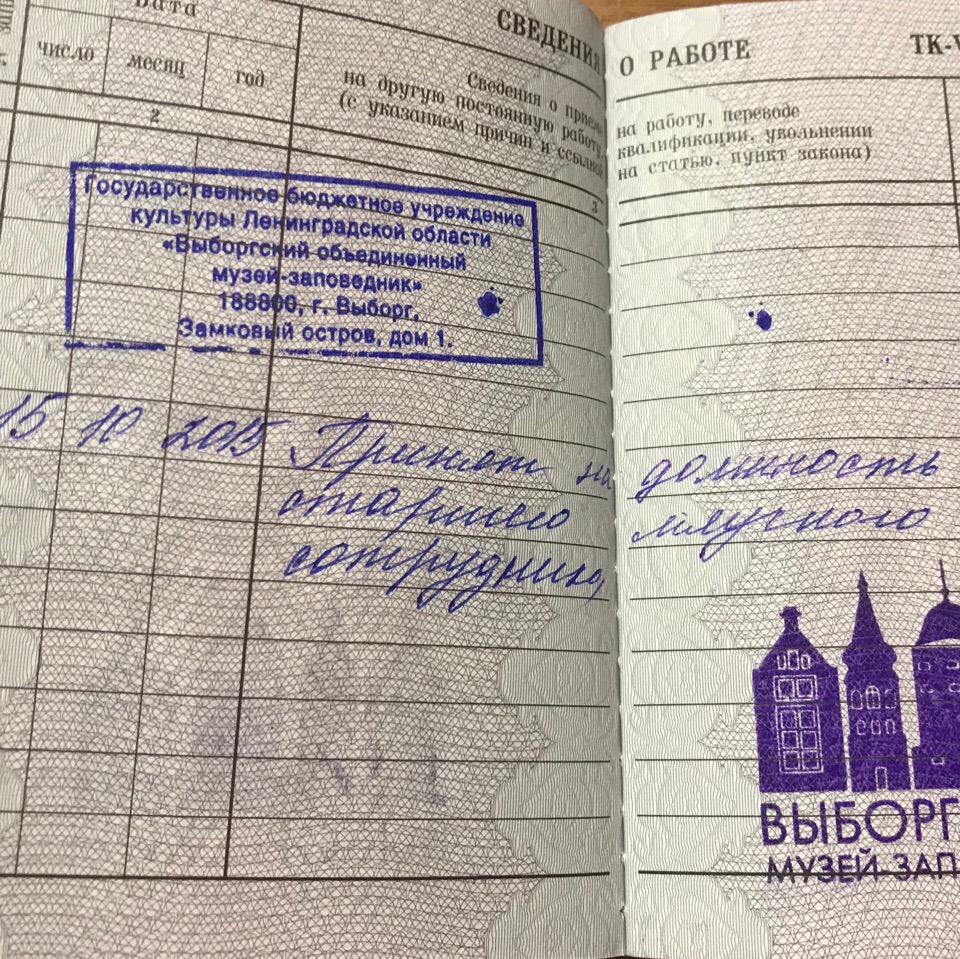 Дата
СВЕДЕНИЯ О РАБОТЕ
ТК-V
число
месяц
год
Сведения о приеме на работу, переводе
на другую постоянную работу, квалификации, увольнении
(с указанием причин и ссылкой на статью, пункт закона)
2
3
Государственное бюджетное учреждение
культуры Ленинградской области
«Выборгский объединенный
музей-заповедник»
188800, г. Выборг,
Замковый остров, дом 1.
15 10 2015 Принят на должность
старшего научного
сотрудника
ВЫБОРГ
МУЗЕЙ-ЗАП